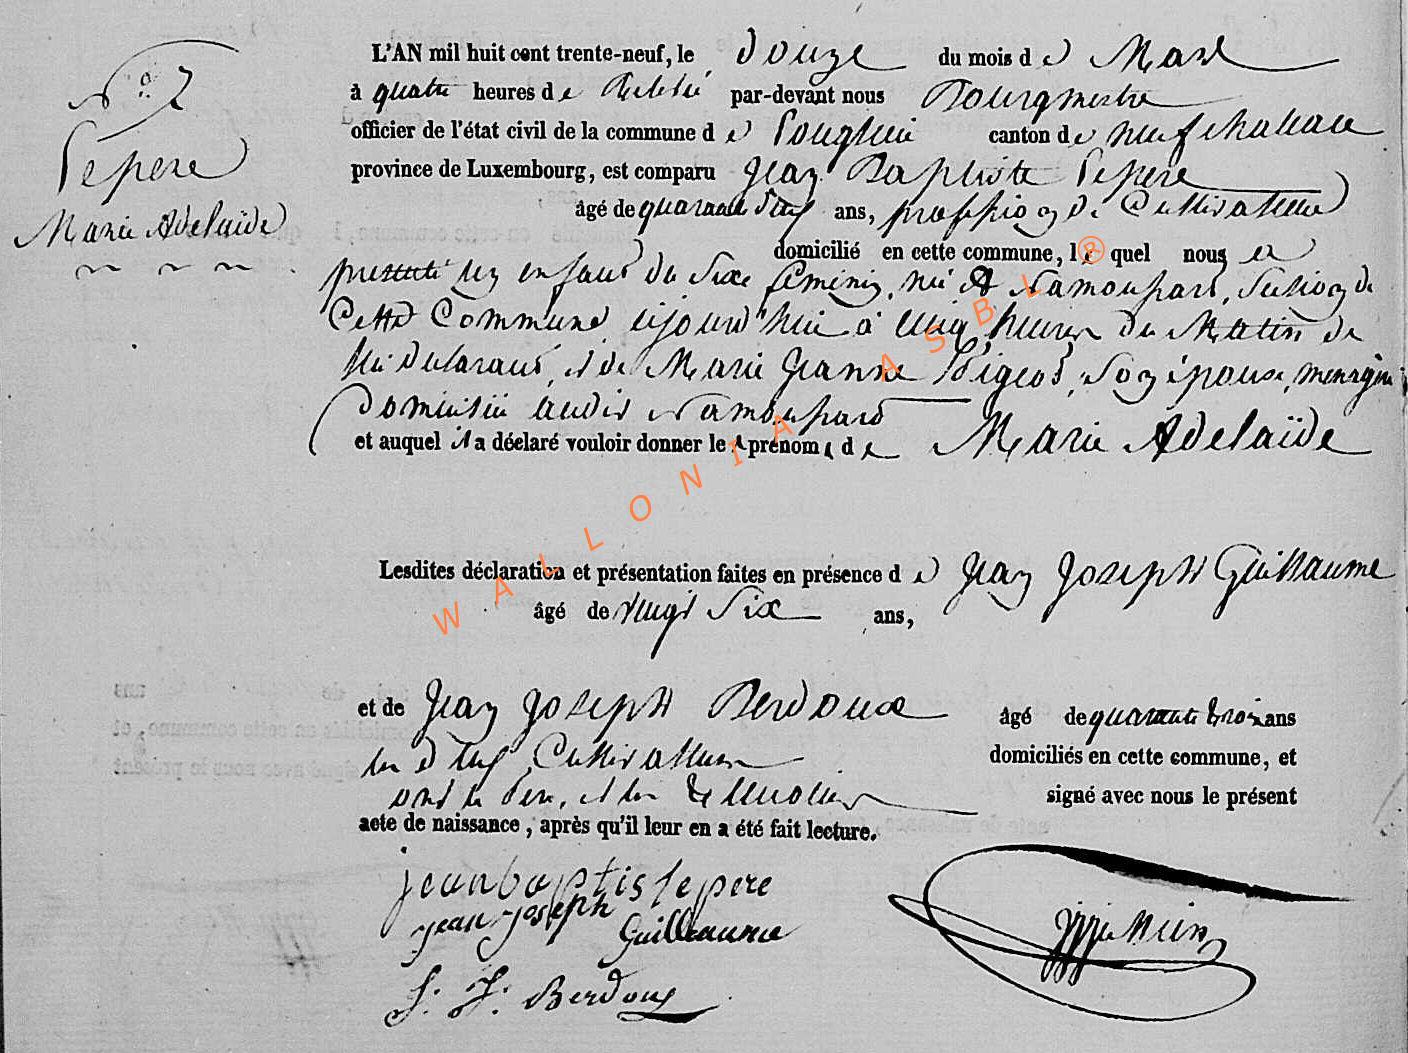 N.o 7
Lepere
Marie Adelaïde
L'AN mil huit cent trente-neuf, le douze du mois de Mars
à quatre heures de Relevé par-devant nous Bourgmestre
officier de l'état civil de la commune de canton de neufchateau
province de Luxembourg, est comparu Jean Baptiste Lepere
âgé de quarante ans, profession de Cultivateur
domicilié en cette commune, lequel nous a
presenté un enfant du Sixe feminin, née à Namoussart, Section de
Cette Commune aujourd'hui à cinq heures du Matin de
lui declarant, et de Marie Jeanne Pigeot, Son épouse, menagere
Domiciliée audit Namoussart
et auquel il a déclaré vouloir donner les prénoms de Marie Adelaïde
Lesdites déclaration et présentation faites en présence de Jean Joseph Guillaume
âgé de vingt Six ans,
et de Jean Joseph Berdoux âgé de quarante trois ans
Cultivateurs domiciliés en cette commune, et
ont le Pere, et les temoins signé avec nous le présent
acte de naissance, après qu'il leur en a été fait lecture.
jean baptis lepere
jean joseph Guilleaume
J. J. Berdoux
WALLONIA ASBL ®